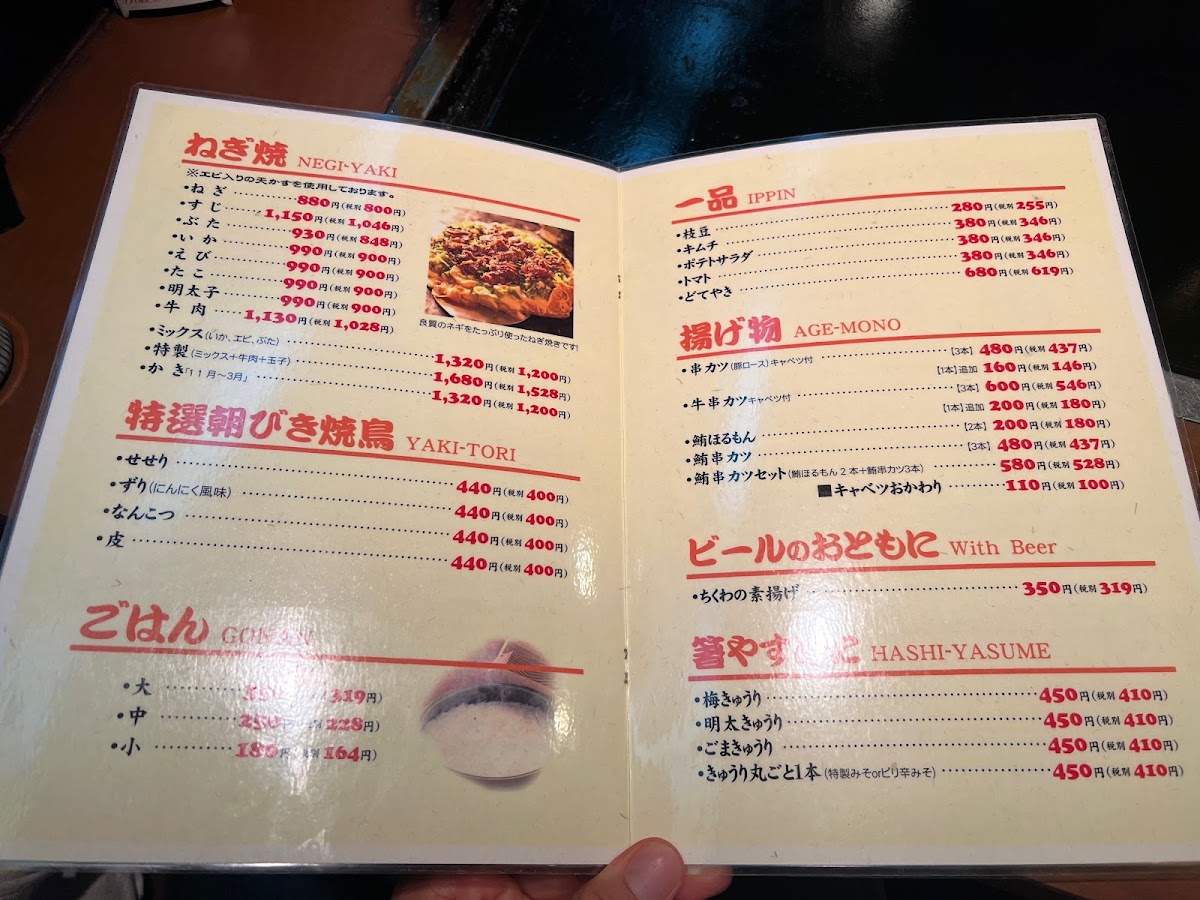 ねぎ焼 NEGI-YAKI
※エビ入りの天かすを使用しております。
・ねぎ 880円(税別 800円)
・すじ 1,150円(税別 1,046円)
・ぶた 930円(税別 848円)
・いか 990円(税別 900円)
・えび 990円(税別 900円)
・たこ 990円(税別 900円)
・明太子 990円(税別 900円)
・牛肉 1,130円(税別 1,028円)
良質のネギをたっぷり使ったねぎ焼きです!
・ミックス(いか、エビ、ぶた) 1,320円(税別 1,200円)
・特製(ミックス+牛肉+玉子) 1,680円(税別 1,528円)
・かき「11月~3月」 1,320円(税別 1,200円)
特選朝びき焼鳥 YAKI-TORI
・せせり 440円(税別 400円)
・ずり(にんにく風味) 440円(税別 400円)
・なんこつ 440円(税別 400円)
・皮 440円(税別 400円)
ごはん GOHAN
・大 319円)
・中 250円(税別 228円)
・小 180円(税別 164円)
一品 IPPIN
・枝豆 280円(税別 255円)
・キムチ 380円(税別 346円)
・ポテトサラダ 380円(税別 346円)
・トマト 380円(税別 346円)
・どてやき 680円(税別 619円)
揚げ物 AGE-MONO
・串カツ(豚ロース)キャベツ付 [3本] 480円(税別 437円)
[1本]追加 160円(税別 146円)
・牛串カツキャベツ付 [3本] 600円(税別 546円)
[1本]追加 200円(税別 180円)
・鮪ほるもん [2本] 200円(税別 180円)
・鮪串カツ [3本] 480円(税別 437円)
・鮪串カツセット(鮪ほるもん2本+鮪串カツ3本) 580円(税別 528円)
■キャベツおかわり 110円(税別 100円)
ビールのおともに With Beer
・ちくわの素揚げ 350円(税別 319円)
箸やすめに HASHI-YASUME
・梅きゅうり 450円(税別 410円)
・明太きゅうり 450円(税別 410円)
・ごまきゅうり 450円(税別 410円)
・きゅうり丸ごと1本(特製みそorピリ辛みそ) 450円(税別 410円)